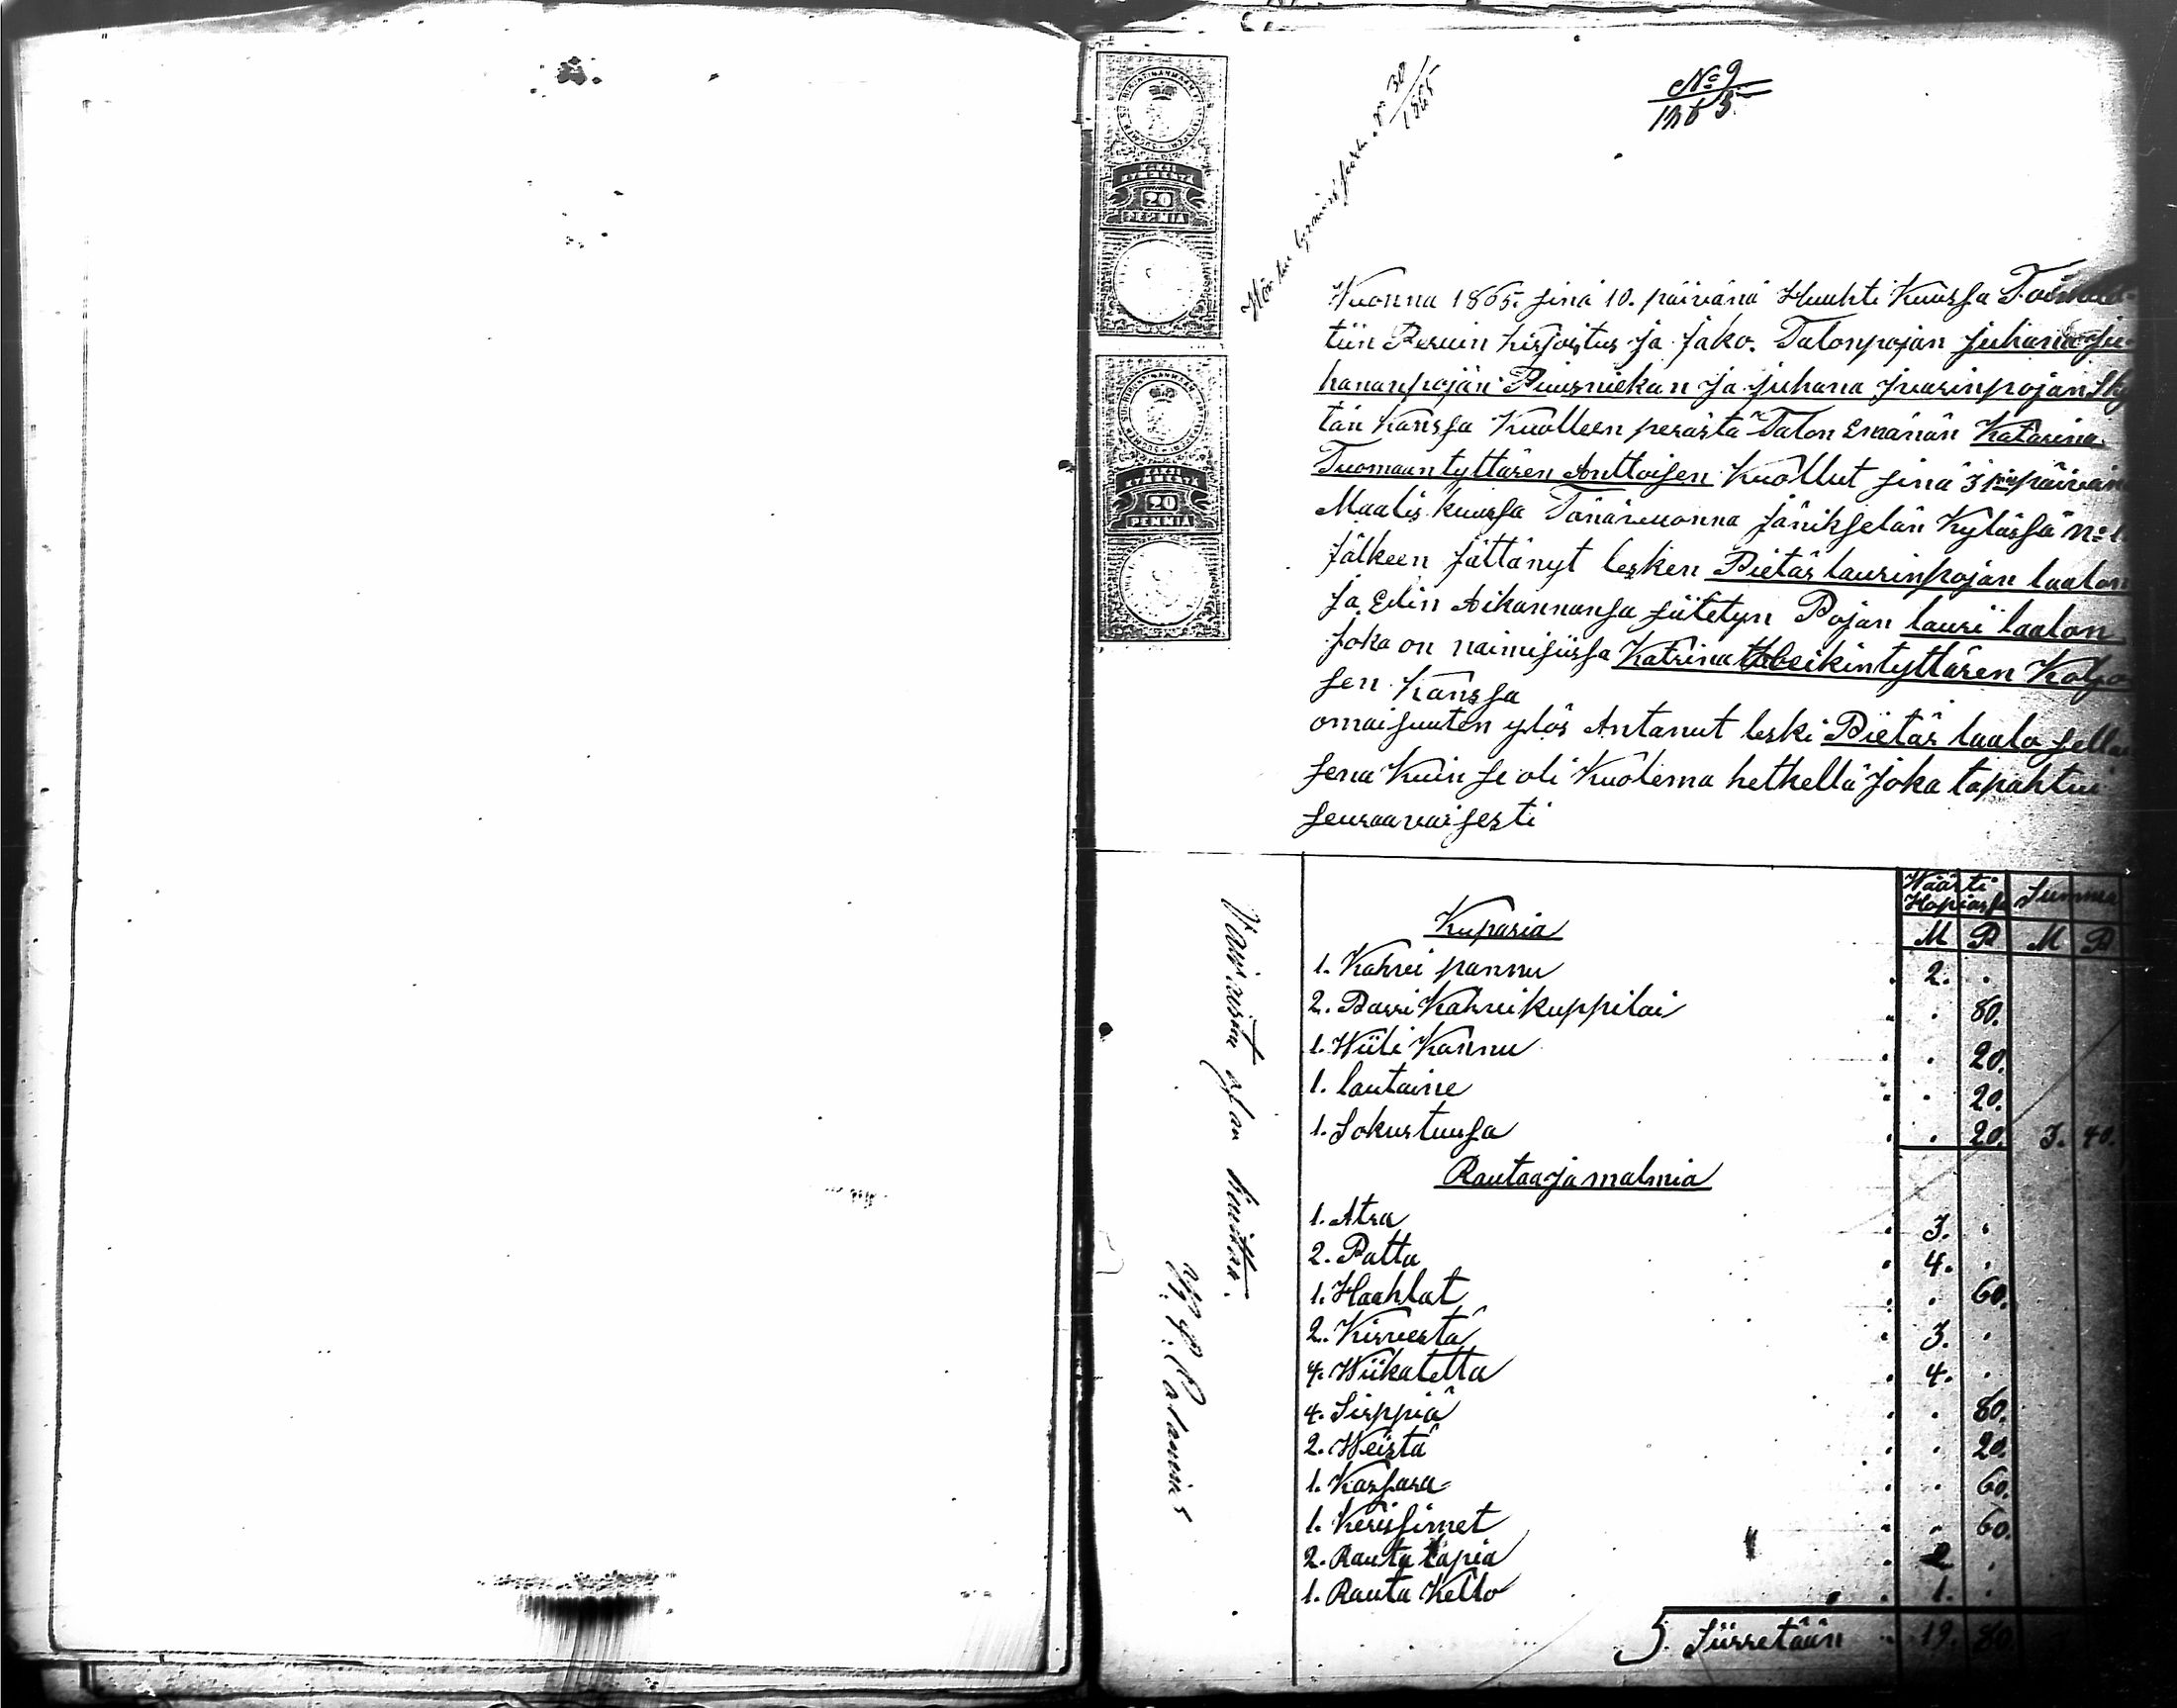 No 9
1865
30
1865
KAKSI
KYMMENTÄ
20
PENNIÄ
KAKSI
KYMMENTÄ
20
PENNIÄ
Wuonna 1865. sinä 10. päivänä Huhti Kuussa
tiin Pesuin kirjoitus ja jako. Talonpojan Juhana Ju-
hananpojan Puusniekan ja Juhana Juasinpojan
tän kanssa Kuolleen perästä Talon Emänän Katarina
Tuomaan tyttären Anttoisen Kuollut sinä päivän
Maalis kuussa Tänävuonna Jänikselän Kylässä No 1.
Jälkeen jättänyt lesken Pietär laurinpojan laalon
ja Edin Aikannansa siitetyn Pojan lauri laalon
joka on naimisissa Katrina Heikintyttären Koljo
sen Kanssa
omaisuuten ylös Antanut leski Pietär laalo sella
sena kuin se oli Kuolema hetkellä joka tapahtui
seuraavaisesti
Wäärti
Hopiassa Summa
M P M P
Kuparia
1. Kahvi pannu 2. .
2. Parri Kahvikuppiloi . 80.
1. Wiili Kannu . 20.
1. lautaine . 20.
1. Sokurtuusa . 20. 3. 40.
Rautaa ja malmia
1. Atra 3. .
2. Patta 4. .
1. Haahlat . 60.
2. Kirvestä 3. .
4. Wiikatetta 4. .
4. Sirppiä . 80.
2. Weistä . 20.
1. Kassara . 60.
1. Kerisimet . 60.
2. Rauta lapia 2 .
1. Rauta Kello 1. .
5. Siirretään 19. 80